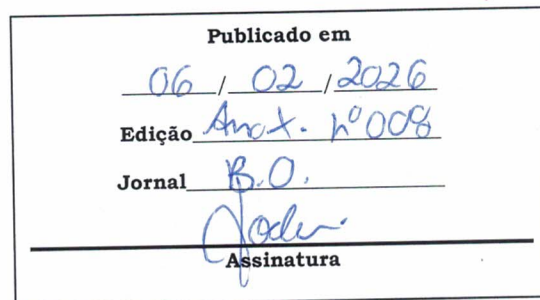 Publicado em
06 / 02 / 2026
Edição Ano X. nº 008
Jornal B.O.
Assinatura